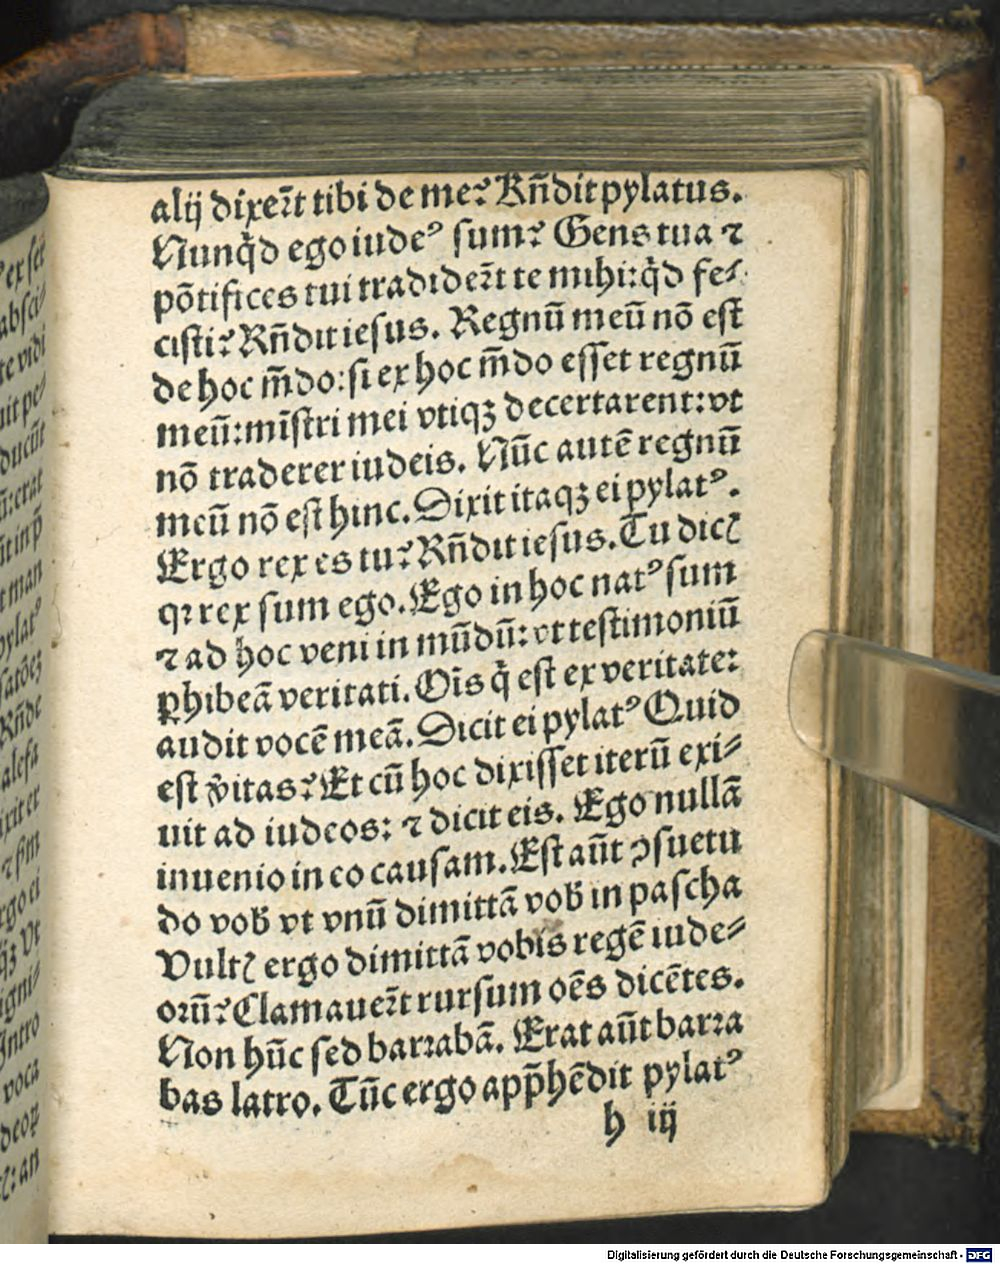 alij dixer̃t tibi de me? Rñdit pylatus.
Nunq̃d ego iudeꝰ sum? Gens tua ⁊
põtifices tui tradider̃t te mihi: q̃d fe⸗
cisti? Rñdit iesus. Regnũ meũ nõ est
de hoc m̃do: si ex hoc m̃do esset regnũ
meũ: mĩstri mei vtiqꝫ decertarent: vt
nõ traderer iudeis. Nũc autẽ regnũ
meũ nõ est hinc. Dixit itaqꝫ ei pylatꝰ.
Ergo rex es tu? Rñdit iesus. Tu dicꝭ
qꝛ rex sum ego. Ego in hoc natꝰ sum
⁊ ad hoc veni in mũdũ: vt testimoniũ
ꝑhibeã veritati. Oĩs q̃ est ex veritate:
audit vocẽ meã. Dicit ei pylatꝰ Quid
est v̑itas? Et cũ hoc dixisset iterũ exi⸗
uit ad iudeos: ⁊ dicit eis. Ego nullã
inuenio in eo causam. Est aũt ꝯsuetu
do vob̃ vt vnũ dimittã vob̃ in pascha
Vultꝭ ergo dimittã vobis regẽ iude⸗
orũ? Clamauer̃t rursum oẽs dicẽtes.
Non hũc sed barrabã. Erat aũt barra
bas latro. Tũc ergo app̃hẽdit pylatꝰ
h iij
Digitalisierung gefördert durch die Deutsche Forschungsgemeinschaft - DFG